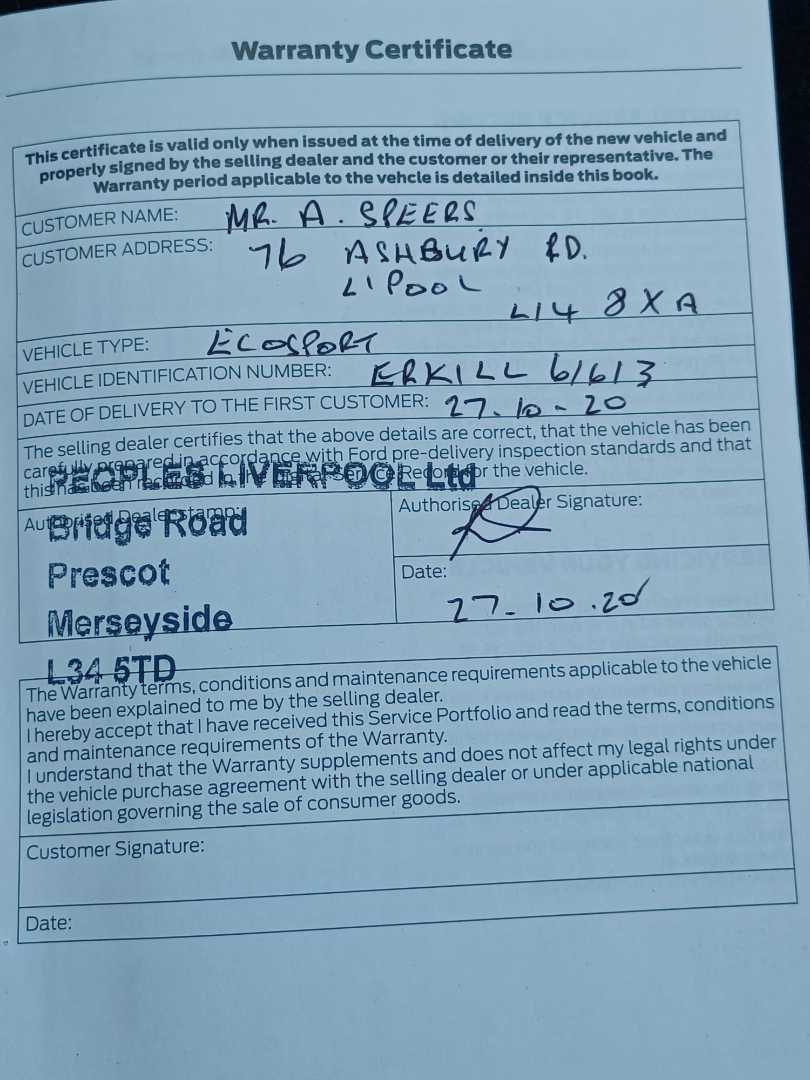 Warranty Certificate
This certificate is valid only when issued at the time of delivery of the new vehicle and
properly signed by the selling dealer and the customer or their representative. The
Warranty period applicable to the vehcle is detailed inside this book.
CUSTOMER NAME: MR. A. SPEERS
CUSTOMER ADDRESS: 76 ASHBURY RD.
L'POOL
L14 8XA
VEHICLE TYPE: ECOSPORT
VEHICLE IDENTIFICATION NUMBER: ERKILL 61613
DATE OF DELIVERY TO THE FIRST CUSTOMER: 27.10-20
The selling dealer certifies that the above details are correct, that the vehicle has been
carefully prepared in accordance with Ford pre-delivery inspection standards and that
this has been recorded in the Service Record for the vehicle.
PEOPLES LIVERPOOL Ltd
Authorised Dealer stamp:
Bridge Road
Prescot
Merseyside
L34 5TD
Authorised Dealer Signature:
Date:
27-10.20
The Warranty terms, conditions and maintenance requirements applicable to the vehicle
have been explained to me by the selling dealer.
I hereby accept that I have received this Service Portfolio and read the terms, conditions
and maintenance requirements of the Warranty.
I understand that the Warranty supplements and does not affect my legal rights under
the vehicle purchase agreement with the selling dealer or under applicable national
legislation governing the sale of consumer goods.
Customer Signature:
Date: